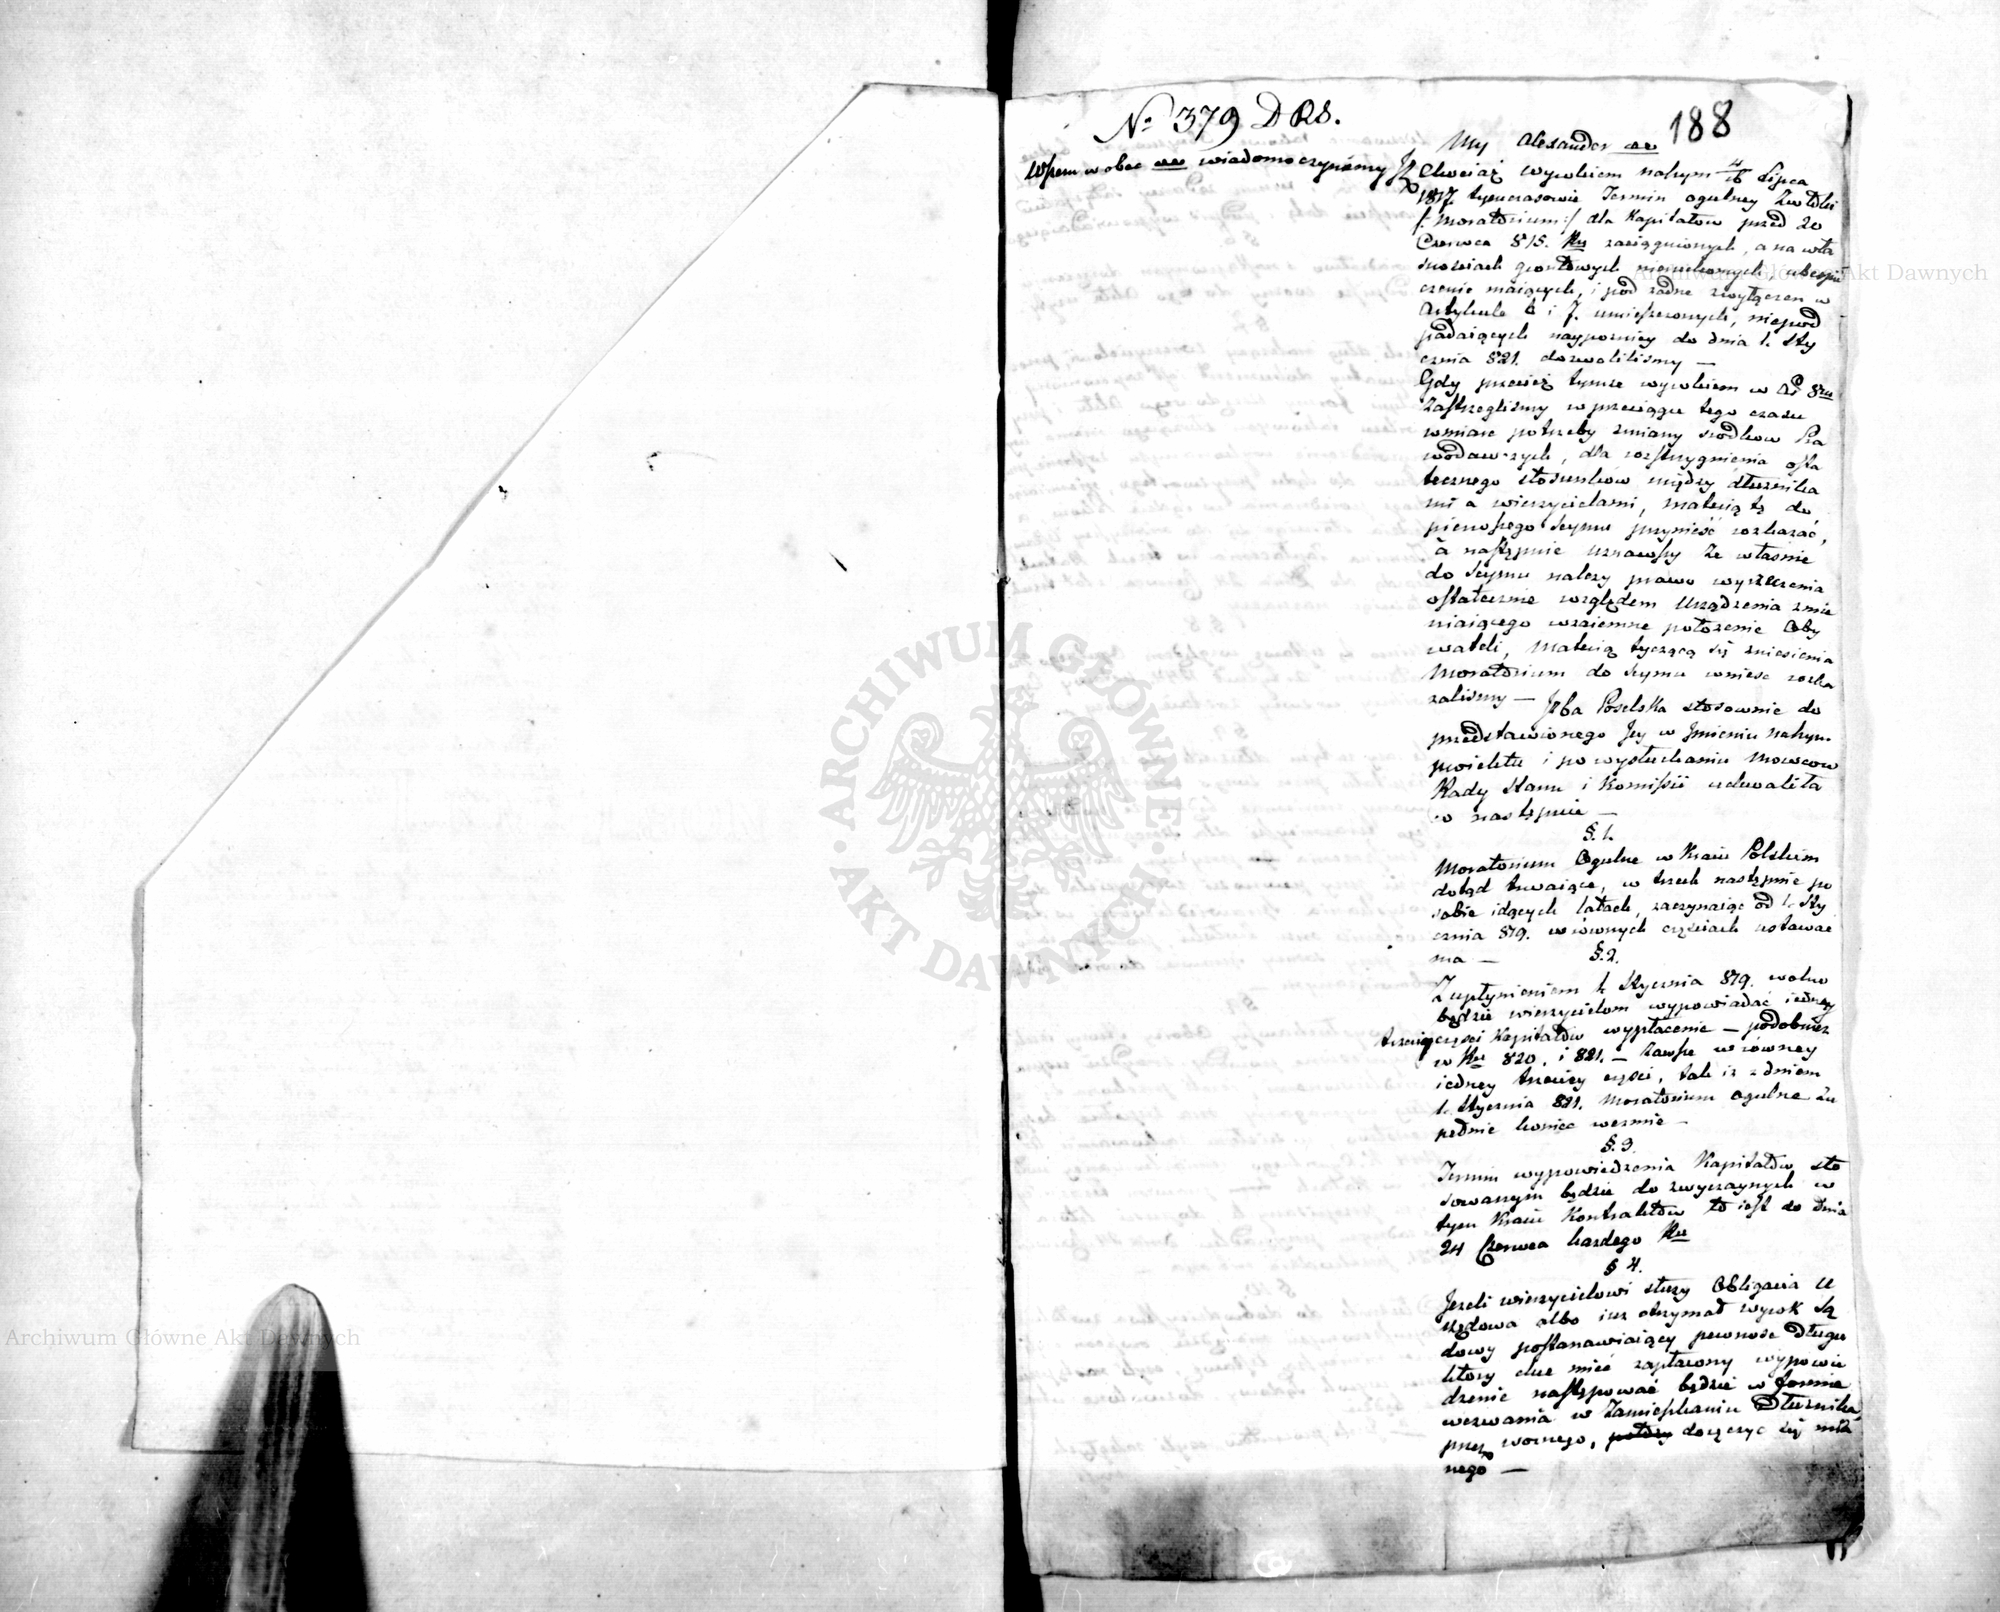 188
No 379 D R S.
My Alexander etc
Wszem w obec etc wiadomo czyniemy Jż
Chociaż wyrokiem naszym 4/16 Lipca
1817. tymczasowie Termin ogulney Zwłoki
/: Moratorium :/ dla Kapitałow przed 20
Czerwca 815. Ru zaciągnionych, a na wła
snosciach gruntowych nieruchomych, ubespie
czenie maiących, i pod żadne zwyłączeń w
Artykule 6 i 7. umieszczonych, niepod
padaiących naypozniey do dnia 1. Sty
cznia 821. dozwoliliśmy —
Gdy przecież tymże wyrokiem w Ar 8ym
Zastrzegliśmy w przeciągu tego czasu
wmiarę potrzeby zmiany srodkow Pra
wodawczych, dla rozstrzygnienia osta
tecznego stosunków między dłużnika
mi a wierzycielami, materią tę do
pierwszego Seymu przynieść rozkazać,
a następnie uznawszy że własnie
do Seymu należy prawo wyrzeczenia
ostatecznie względem Urządzenia zmie
niaiącego wzaiemne położenie Oby
wateli, Materią tyczącą się zniesienia
Moratorium do Seymu wnieść rozka
zaliśmy — Jzba Poselska stosownie do
przedstawionego Jey w Jmieniu naszym
proiektu i po wysłuchaniu Mowcow
Rady Stanu i Komissii uchwaliła
co następuie —
§. 1.
Moratorium Ogulne w Kraiu Polskim
dotąd trwaiące, w trzech następnie po
sobie idących latach, zaczynaiąc od 1. Sty
cznia 819. w równych częściach ustawać
ma —
§. 2.
Z upłynieniem 1. Stycznia 819. wolno
będzie wierzycielom wypowiadać iedney
trzeciey części Kapitałów wypłacenie — podobnież
w Ru 820. i 821. — zawsze w równey
iedney trzeciey części, tak iż z dniem
1. Stycznia 821. Moratorium ogulne zu
pełnie koniec wezmie —
§. 3.
Termin wypowiedzenia Kapitałów sto
sowanym będzie do zwyczaynych w
tym Kraiu Kontraktów to iest do dnia
24 Czerwca każdego Ru
§ 4.
Jeżeli wierzycielowi służy Obligacia U
rzędowa albo iuż otrzymał wyrok Są
dowy postanawiaiący pewność Długu
który chce mieć zapłacony wypowie
dzenie następować będzie w formie
wezwania w Zamieszkaniu Dłużnika
przez woznego, doręczyć się maią
nego —
Archiwum Główne Akt Dawnych
Archiwum Główne Akt Dawnych
ARCHIWUM GŁÓWNE
AKT DAWNYCH